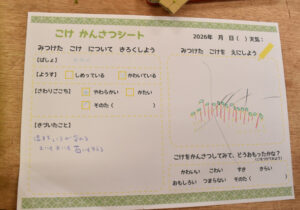 こけ かんさつシート
2026年　月　日（　）天気：
みつけた　こけ　について　きろくしよう
みつけた　こけを　えにしよう
【ばしょ】
【ようす】　しめっている　かわいている
【さわりごこち】　やわらかい　かたい
そのた（　　）
【きづいたこと】
こけをかんさつしてみて、どうおもったかな？
かわいい　こわい　すき　きらい
おもしろい　つまらない　そのた（　　）